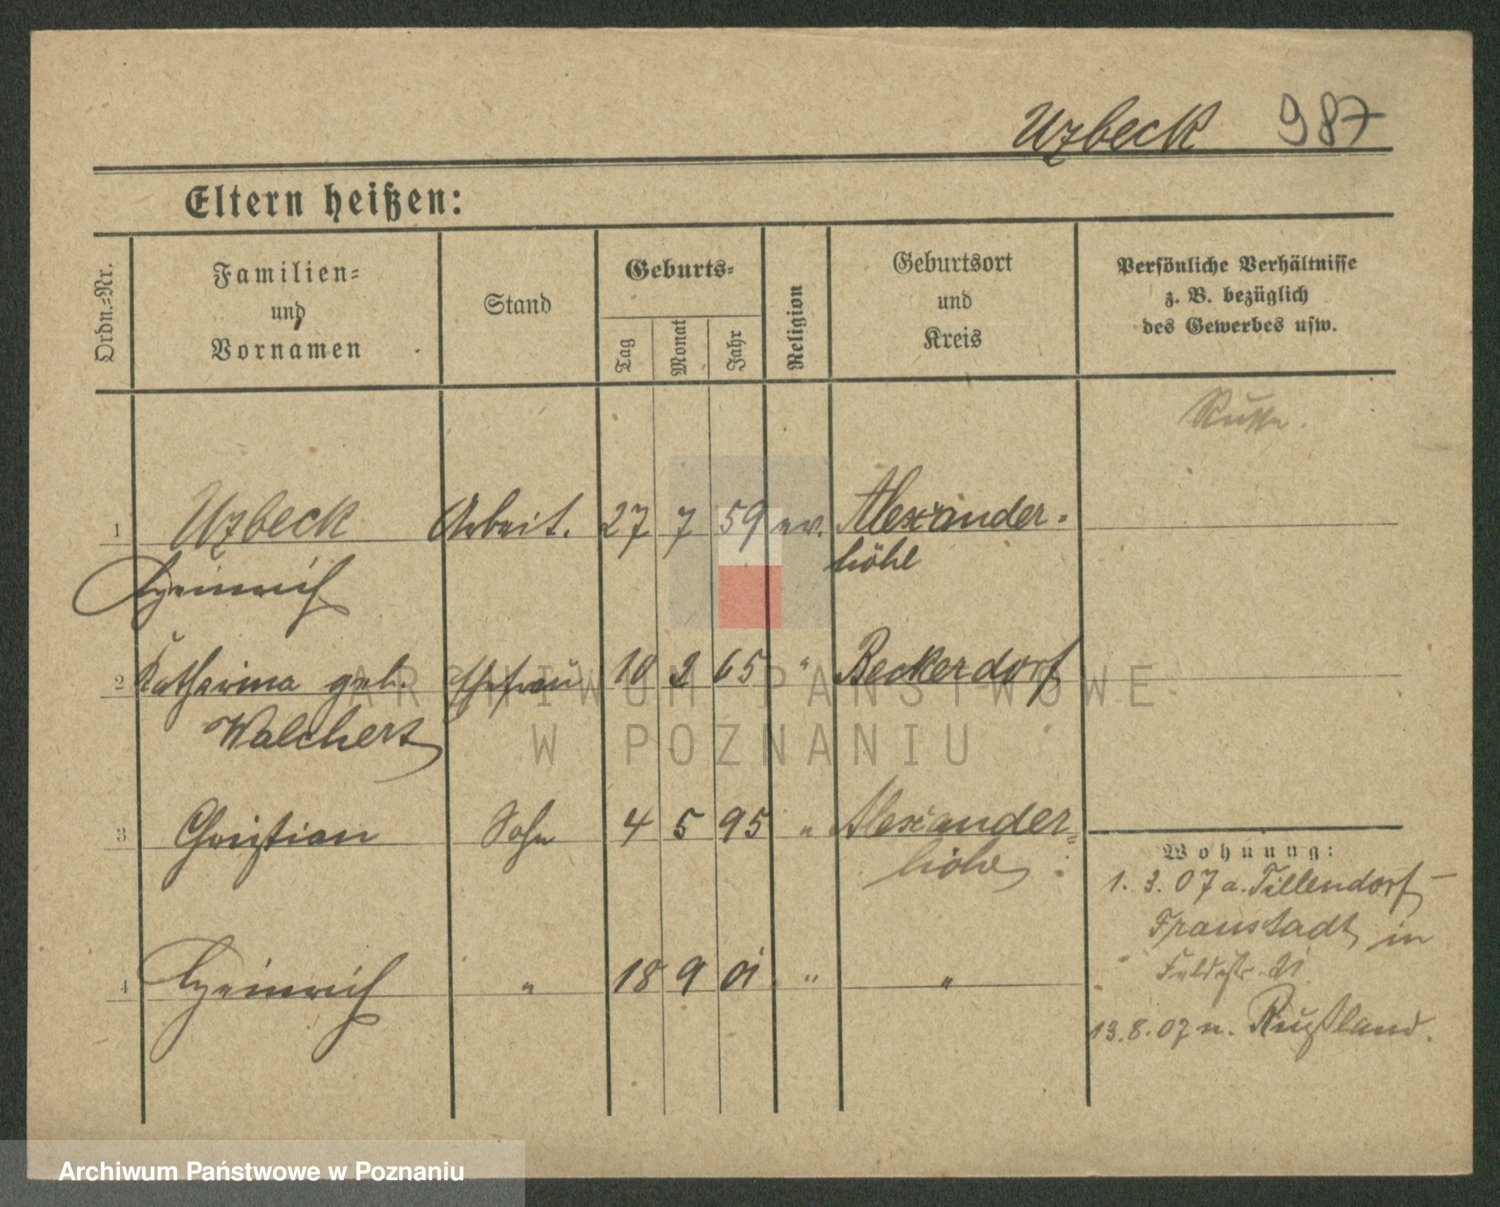 Uzbeck 987
Eltern heißen:
Ordn.=Nr.
Familien=
und
Vornamen
Stand
Geburts=
Tag
Monat
Jahr
Religion
Geburtsort
und
Kreis
Persönliche Verhältnisse
z. B. bezüglich
des Gewerbes usw.
Russe.
1 Uzbeck Arbeit. 27 7 59 ev. Alexander-
Heinrich höhe
2 Katharina geb. Ehefrau 10 2 65 " Beckerdorf
Walchert
3 Christian Sohn 4 5 95 " Alexander=
höhe
4 Heinrich " 18 9 01 " "
Wohnung:
1. 3. 07 a. Tillendorf
Fraustadt in
Feldstr.
13. 8. 07 n. Rußland.
ARCHIWUM PAŃSTWOWE
W POZNANIU
Archiwum Państwowe w Poznaniu